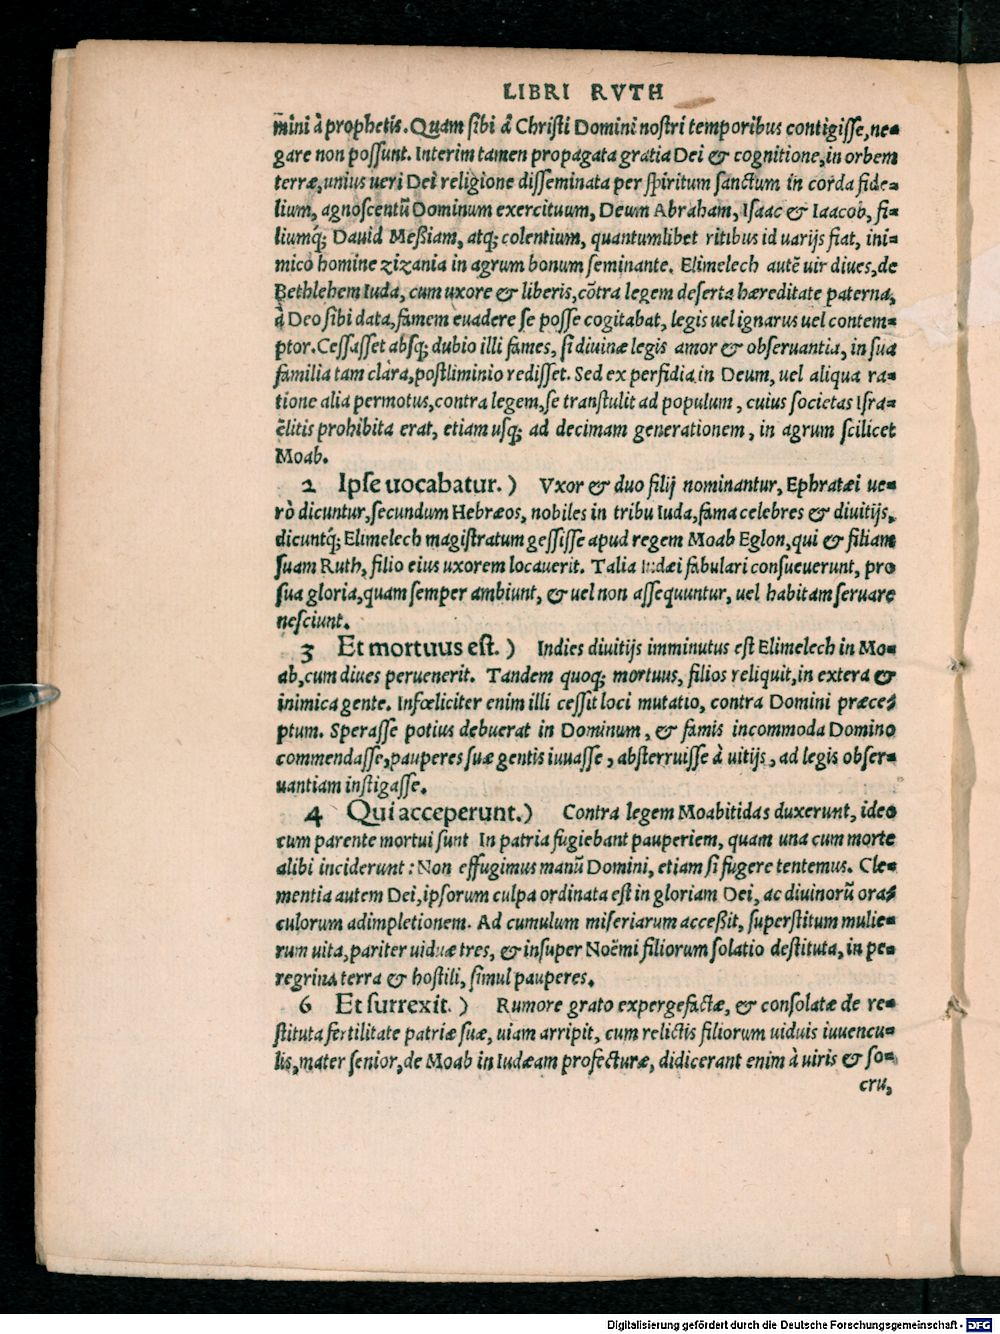 LIBRI RVTH
mini à prophetis. Quam sibi â Christi Domini nostri temporibus contigisse, ne=
gare non possunt. Interim tamen propagata gratia Dei & cognitione, in orbem
terræ, unius ueri Dei religione disseminata per spiritum sanctum in corda fide=
lium, agnoscentū Dominum exercituum, Deum Abraham, Isaac & Iaacob, fi=
liumq́; Dauid Meßiam, atq; colentium, quantumlibet ritibus id uarijs fiat, ini=
mico homine zizania in agrum bonum seminante. Elimelech autē uir diues, de
Bethlehem Iuda, cum uxore & liberis, cōtra legem deserta hæreditate paterna,
à Deo sibi data, famem euadere se posse cogitabat, legis uel ignarus uel contem=
ptor. Cessasset absq; dubio illi fames, si diuinæ legis amor & obseruantia, in sua
familia tam clara, postliminio redisset. Sed ex perfidia in Deum, uel aliqua ra=
tione alia permotus, contra legem, se transtulit ad populum, cuius societas Isra=
ëlitis prohibita erat, etiam usq; ad decimam generationem, in agrum scilicet
Moab.
2 Ipse uocabatur.) Vxor & duo filij nominantur, Ephratæi ue=
rò dicuntur, secundum Hebræos, nobiles in tribu Iuda, fama celebres & diuitijs,
dicuntq́; Elimelech magistratum gessisse apud regem Moab Eglon, qui & filiam
suam Ruth, filio eius uxorem locauerit. Talia Iudæi fabulari consueuerunt, pro
sua gloria, quam semper ambiunt, & uel non assequuntur, uel habitam seruare
nesciunt.
3 Et mortuus est.) Indies diuitijs imminutus est Elimelech in Mo=
ab, cum diues peruenerit. Tandem quoq; mortuus, filios reliquit, in extera &
inimica gente. Infœliciter enim illi cessit loci mutatio, contra Domini præce=
ptum. Sperasse potius debuerat in Dominum, & famis incommoda Domino
commendasse, pauperes suæ gentis iuuasse, absterruisse à uitijs, ad legis obser=
uantiam instigasse.
4 Qui acceperunt.) Contra legem Moabitidas duxerunt, ideo
cum parente mortui sunt In patria fugiebant pauperiem, quam una cum morte
alibi inciderunt: Non effugimus manū Domini, etiam si fugere tentemus. Cle=
mentia autem Dei, ipsorum culpa ordinata est in gloriam Dei, ac diuinorū ora=
culorum adimpletionem. Ad cumulum miseriarum acceßit, superstitum mulie=
rum uita, pariter uiduæ tres, & insuper Noëmi filiorum solatio destituta, in pe=
regrina terra & hostili, simul pauperes.
6 Et surrexit.) Rumore grato expergefactæ, & consolatæ de re=
stituta fertilitate patriæ suæ, uiam arripit, cum relictis filiorum uiduis iuuencu=
lis, mater senior, de Moab in Iudæam profecturæ, didicerant enim à uiris & so=
cru,
Digitalisierung gefördert durch die Deutsche Forschungsgemeinschaft - DFG